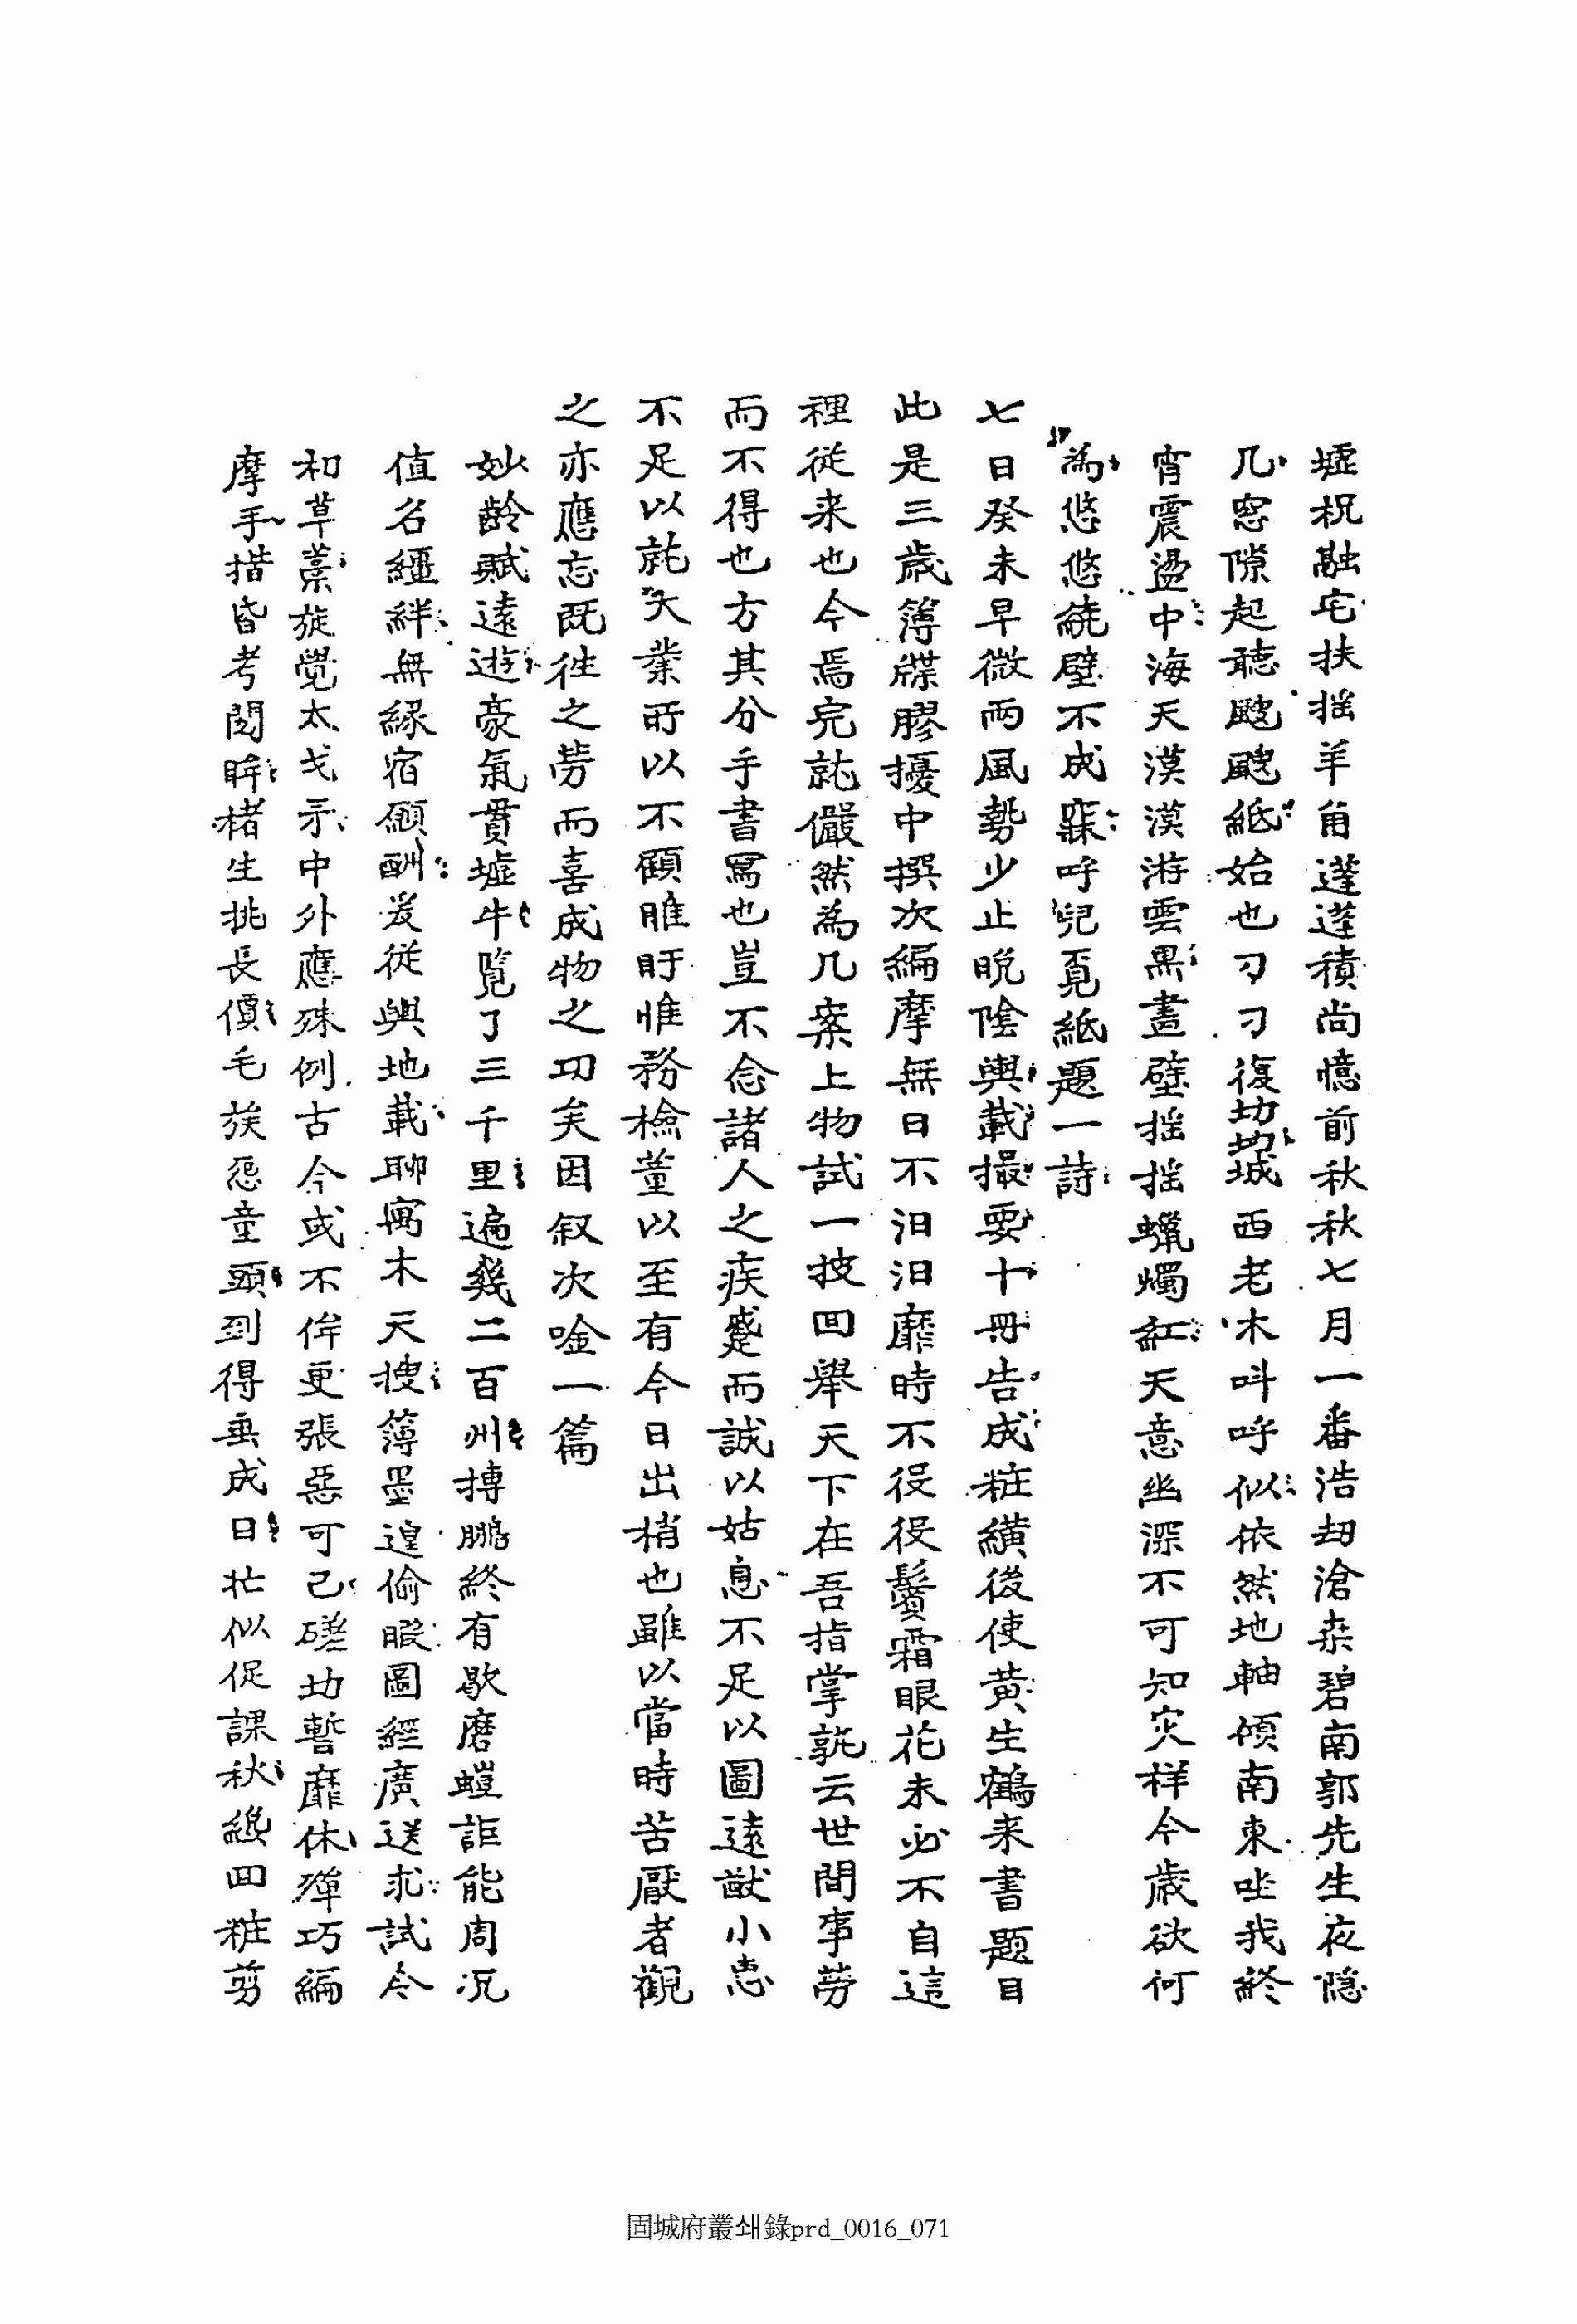 墟祝融宅扶搖羊角蓬蓬積尚憶前秋秋七月一番浩劫滄桑碧南郭先生夜隱
几窓隙起聴颼颼紙始也刁刁復㘦㘦城西老木呌呼似依然地軸傾南東坐我終
宵震盪中海天漠漠游雲黒畫壁搖搖蠟燭紅天意幽深不可知灾祥今歳欲何
為悠悠繞壁不成寐呼兒覓紙題一詩
七日癸未早微雨風勢少止晩陰輿載撮要十冊告成粧䌙後使黄生鶴来書題目
此是三歳簿牒膠擾中撰次編摩無日不汨汨靡時不役役鬢霜眼花未必不自這
裡従来也今焉完就儼然為几案上物試一披回舉天下在吾指掌孰云世間事勞
而不得也方其分手書冩也豈不念諸人之疾蹙而誠以姑息不足以圖遠猷小恵
不足以就大業所以不顧睢盱惟務檢董以至有今日出梢也雖以當時苦厭者觀
之亦應忘既徃之勞而喜成物之功矣因叙次唫一篇
妙齡賦遠遊豪氣貫墟牛覽了三千里遍幾二百州摶鵬終有歇磨螘詎能周况
值名繮絆無緣宿願酬爰従輿地載聊寓木天搜簿墨遑偷暇圖經廣送求試令
和草藁旋覺太戈矛中外應殊例古今或不侔更張惡可已磋功誓靡休殫巧編
摩手揩昏考閱眸楮生挑長價毛族怨童頭到得垂成日忙似促課秋纔回粧剪
固城府叢쇄錄prd_0016_071